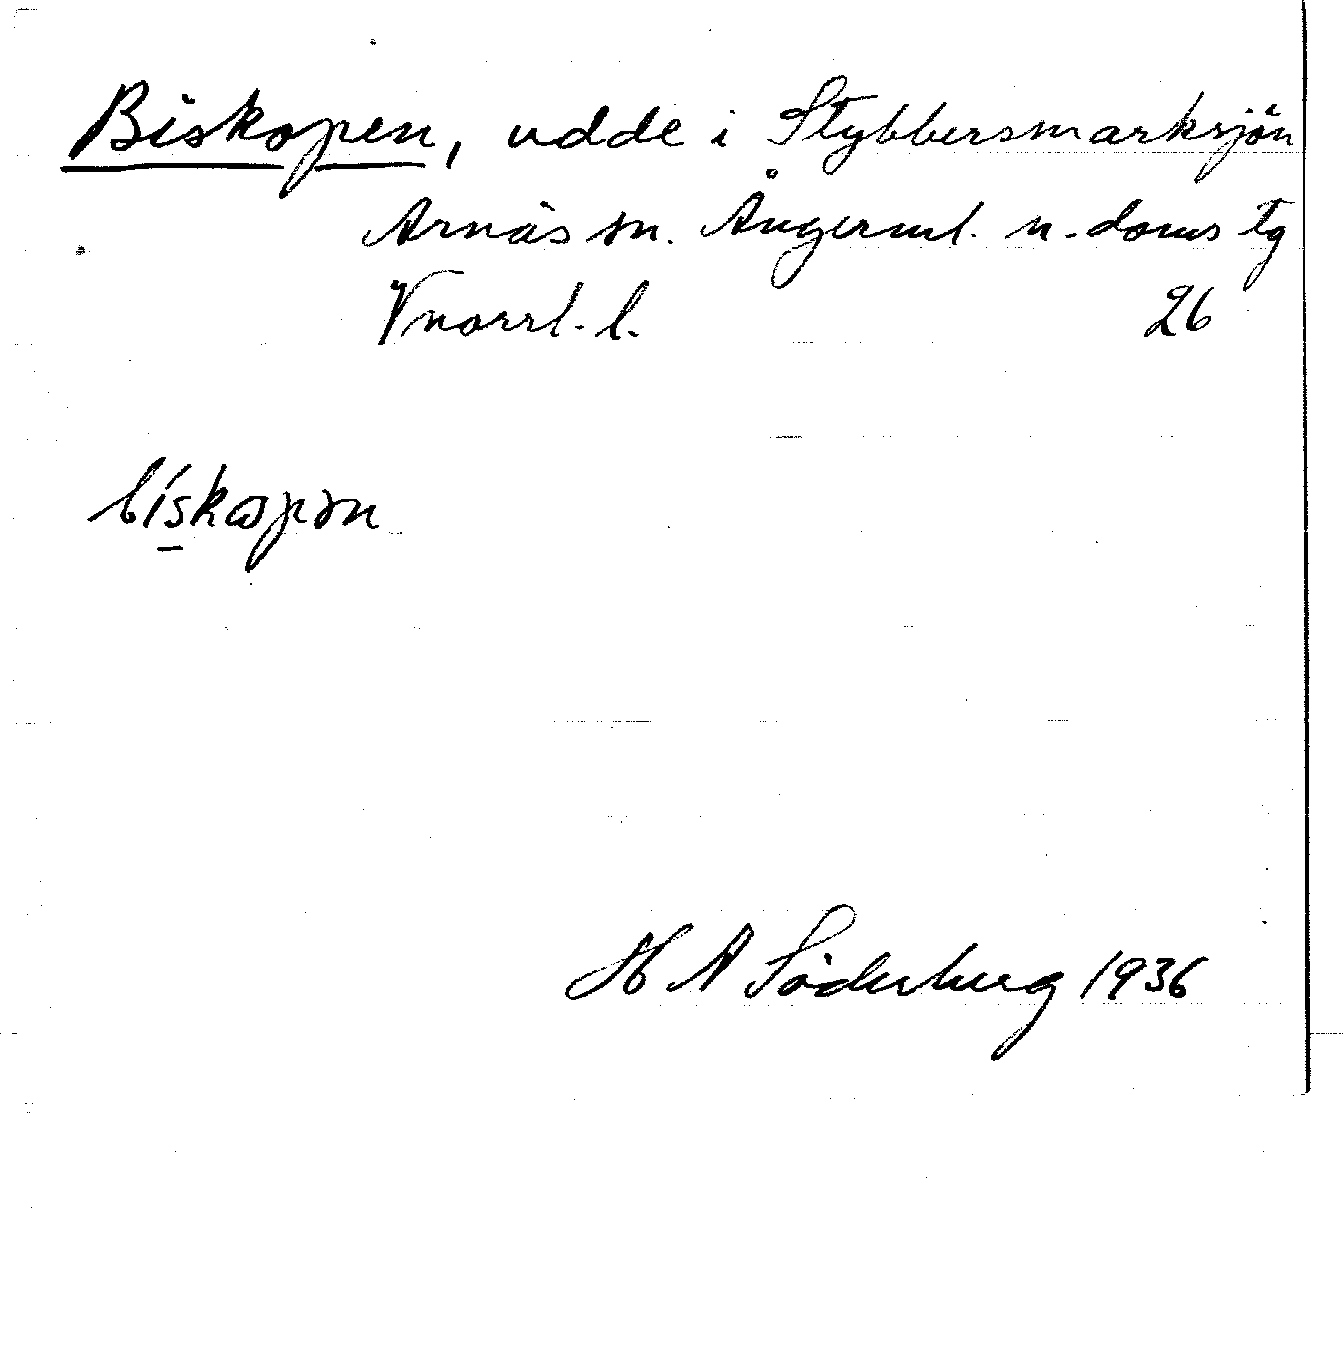 Biskopen, udde i Stybbersmarksjön
Arnäs sn. Ångerml. n. doms tg
Vnorrl. l. 26
bískopən
H A Söderberg 1936